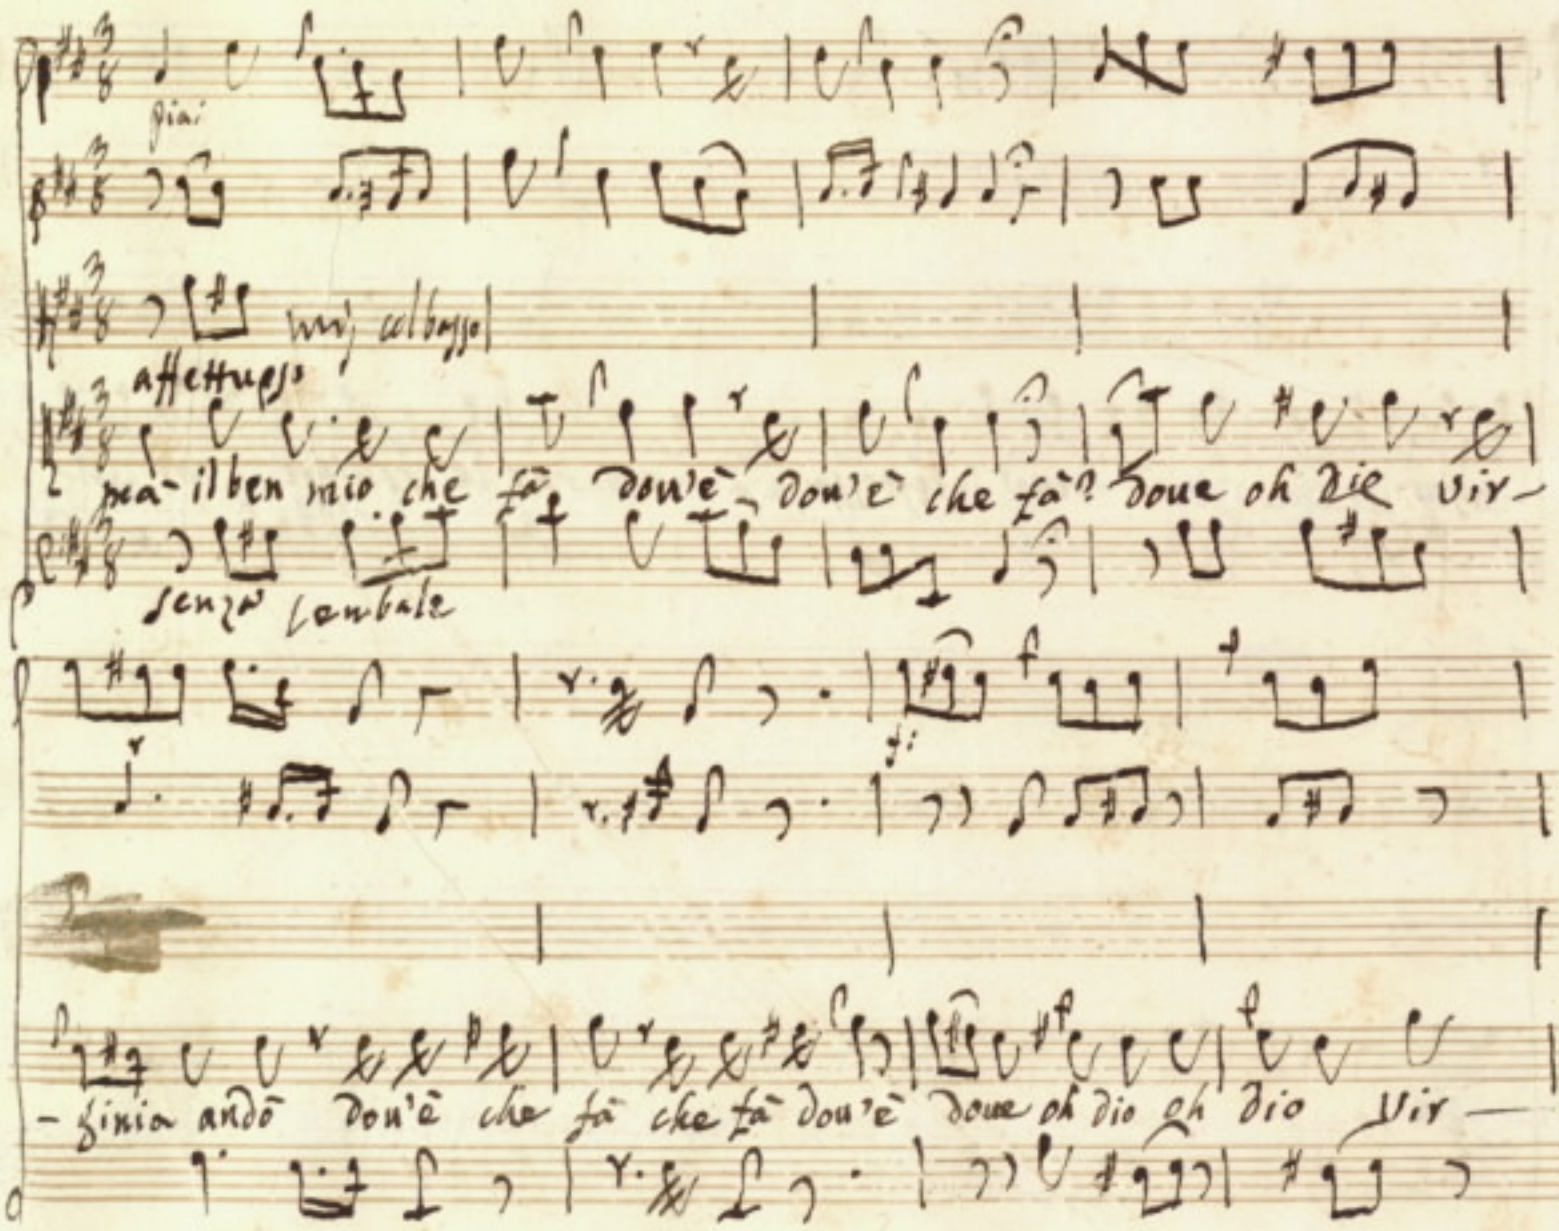 pia:
col basso
affettuoso
mà il ben mio che fà dou'è dou'è che fà? doue oh Dio vir-
senza cembalo
f:
-ginia andò dou'è che fà che fà dou'è doue oh dio oh dio vir-